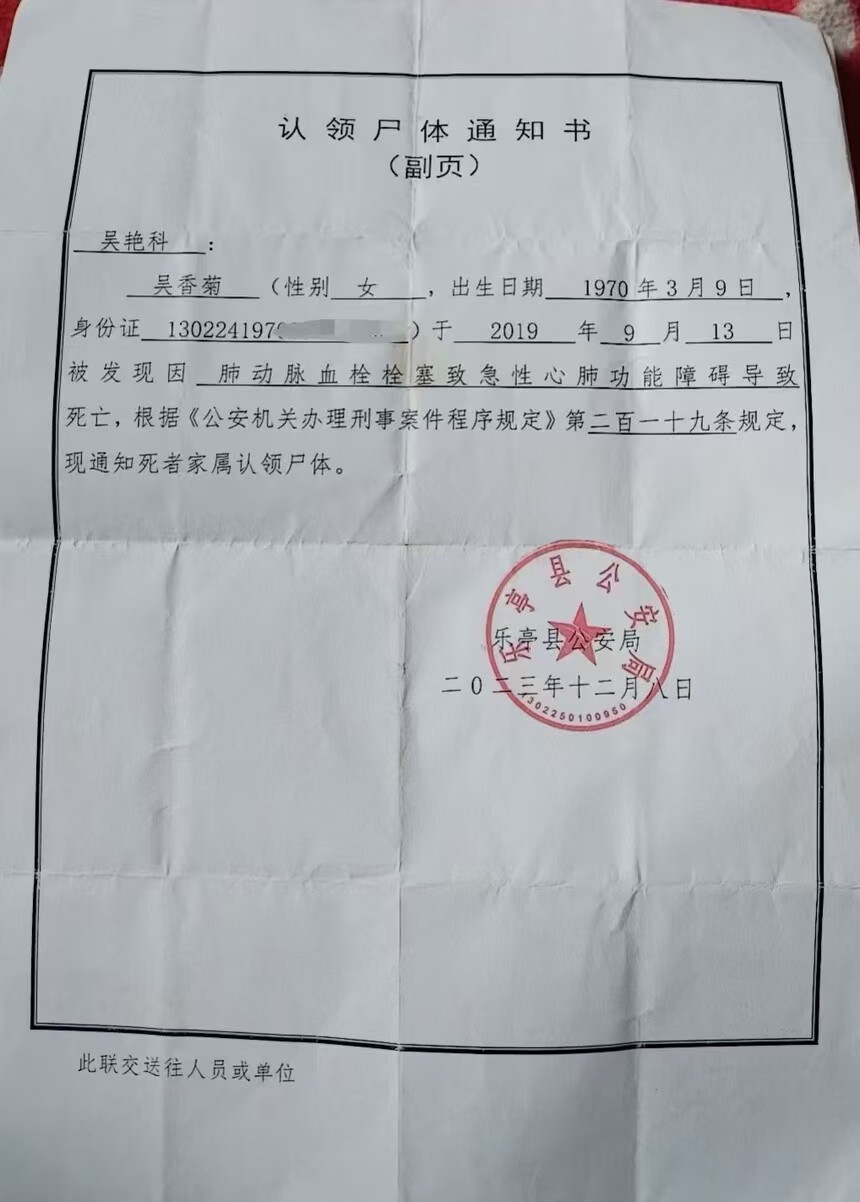 认领尸体通知书
（副页）
吴艳科：
吴香菊（性别 女 ，出生日期 1970年3月9日，
身份证 130224197 ）于 2019 年 9 月 13 日
被发现因 肺动脉血栓栓塞致急性心肺功能障碍导致
死亡，根据《公安机关办理刑事案件程序规定》第二百一十九条规定，
现通知死者家属认领尸体。
乐亭县公安局
乐亭县公安局
二0二三年十二月八日
1302250100950
此联交送往人员或单位